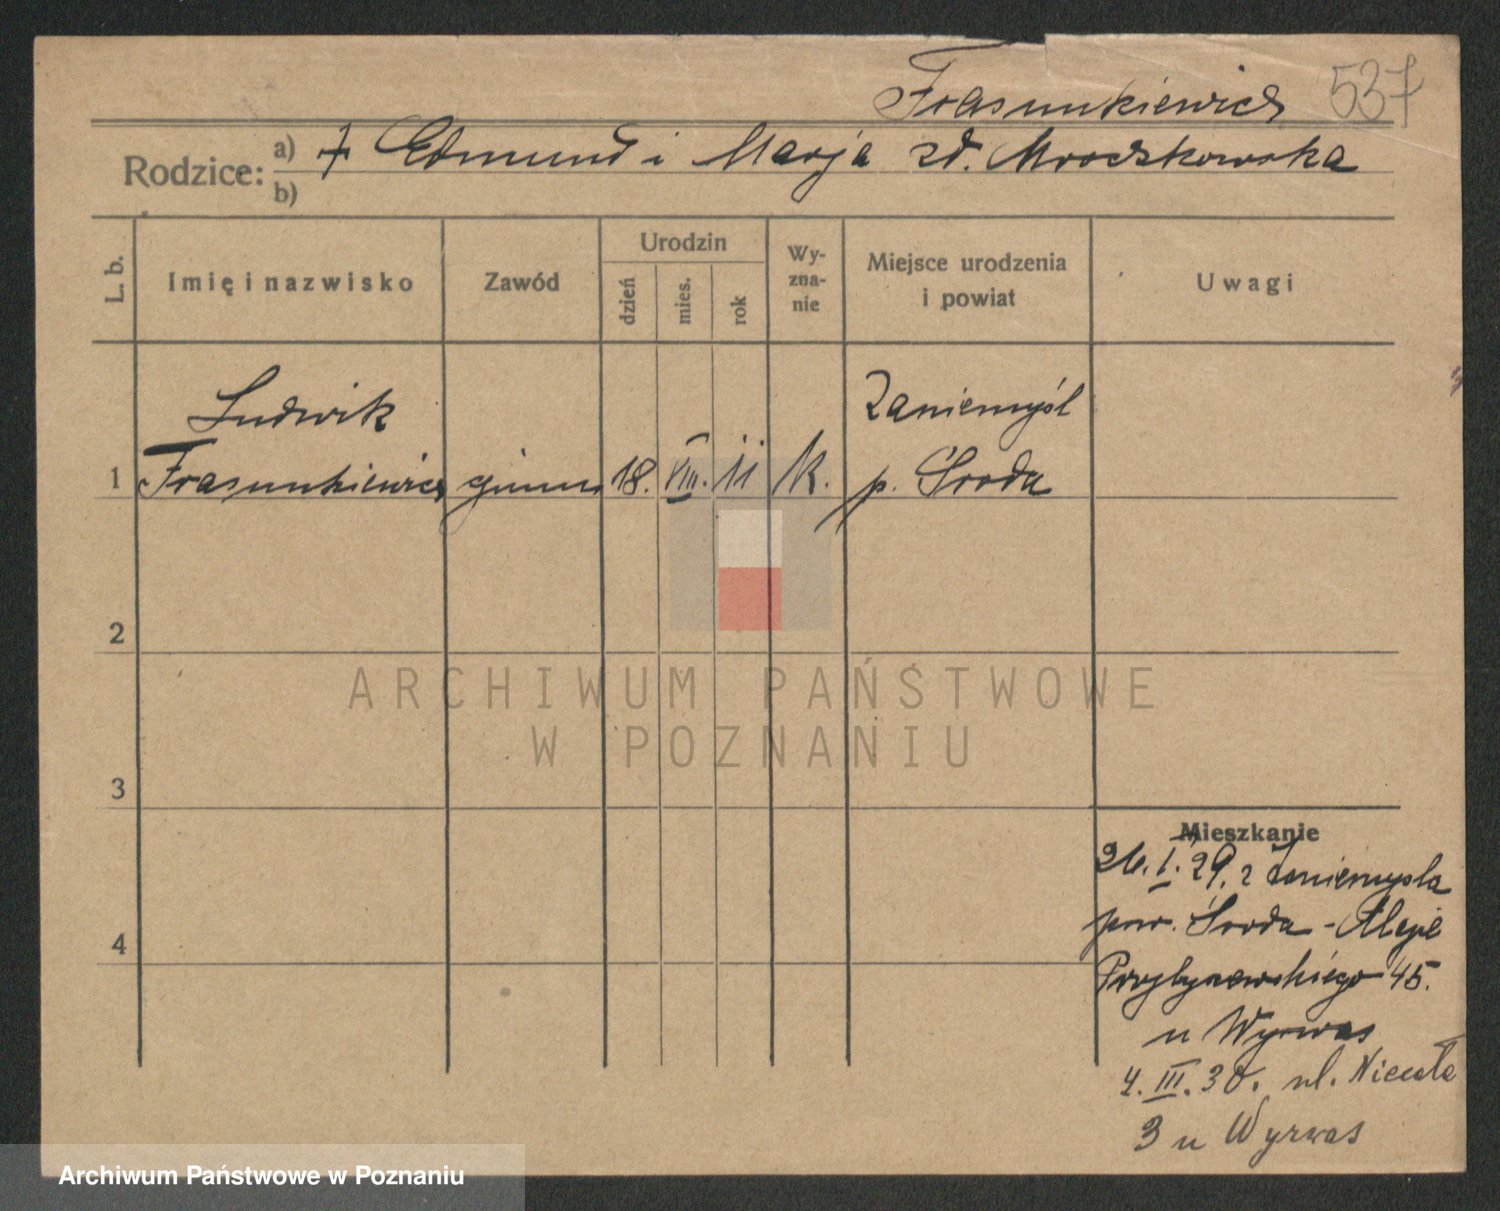 Frasunkiewicz 537
Rodzice: a) † Edmund i Marja zd. Mroczkowska
b)
L. b.
Imię i nazwisko
Zawód
Urodzin
dzień
mies.
rok
Wy-
zna-
nie
Miejsce urodzenia
i powiat
Uwagi
Ludwik Zaniemyśl
1 Frasunkiewicz gimn. 18. VIII. 11 k. p. Środa
2
ARCHIWUM PAŃSTWOWE
W POZNANIU
3
Mieszkanie
26.I.29. z Zaniemyśla
pow. Środa - Aleje
Przybyszewskiego 45.
u Wyrwas
4
4.III.30. ul. Niecała
3 u Wyrwas
Archiwum Państwowe w Poznaniu